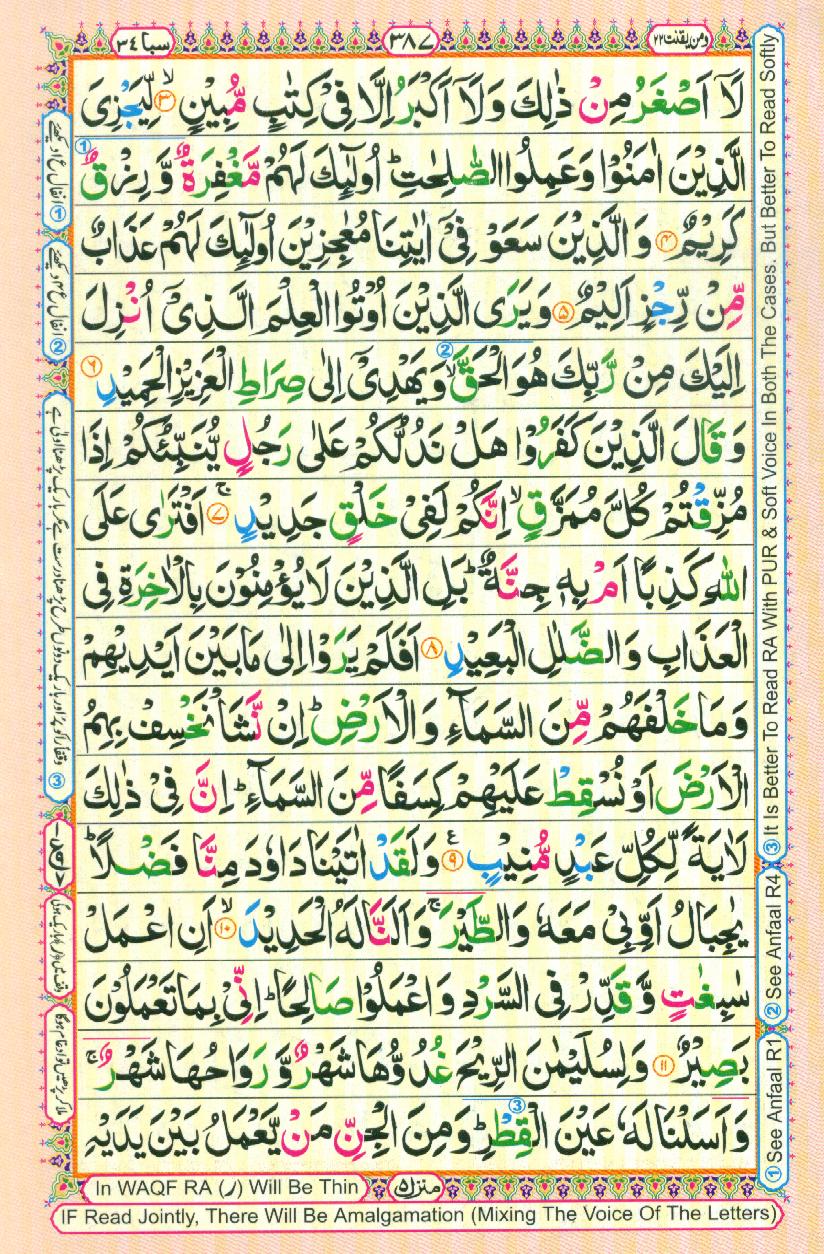 سبا ٣٤
٣٨٧
ومن يقنت ٢٢
لَاۤ اَصْغَرُ مِنْ ذٰلِكَ وَلَاۤ اَكْبَرُ اِلَّا فِیْ كِتٰبٍ مُّبِیْنٍ ۙ﴿٣﴾ لِّیَجْزِیَ
الَّذِیْنَ اٰمَنُوْا وَعَمِلُوا الصّٰلِحٰتِ ؕ اُولٰٓئِكَ لَهُمْ مَّغْفِرَةٌ وَّ رِزْقٌ
كَرِیْمٌ ﴿٤﴾ وَ الَّذِیْنَ سَعَوْ فِیْۤ اٰیٰتِنَا مُعٰجِزِیْنَ اُولٰٓئِكَ لَهُمْ عَذَابٌ
مِّنْ رِّجْزٍ اَلِیْمٌ ﴿٥﴾ وَیَرَی الَّذِیْنَ اُوْتُوا الْعِلْمَ الَّذِیْۤ اُنْزِلَ
اِلَیْكَ مِنْ رَّبِّكَ هُوَ الْحَقَّ ۙ وَیَهْدِیْۤ اِلٰی صِرَاطِ الْعَزِیْزِ الْحَمِیْدِ ﴿٦﴾
وَقَالَ الَّذِیْنَ كَفَرُوْا هَلْ نَدُلُّكُمْ عَلٰی رَجُلٍ یُّنَبِّئُكُمْ اِذَا
مُزِّقْتُمْ كُلَّ مُمَزَّقٍ ۙ اِنَّكُمْ لَفِیْ خَلْقٍ جَدِیْدٍ ۚ﴿٧﴾ اَفْتَرٰی عَلَی
اللهِ كَذِبًا اَمْ بِهٖ جِنَّةٌ ؕ بَلِ الَّذِیْنَ لَا یُؤْمِنُوْنَ بِالْاٰخِرَةِ فِی
الْعَذَابِ وَالضَّلٰلِ الْبَعِیْدِ ﴿٨﴾ اَفَلَمْ یَرَوْا اِلٰی مَا بَیْنَ اَیْدِیْهِمْ
وَمَا خَلْفَهُمْ مِّنَ السَّمَآءِ وَالْاَرْضِ ؕ اِنْ نَّشَاْ نَخْسِفْ بِهِمُ
الْاَرْضَ اَوْ نُسْقِطْ عَلَیْهِمْ كِسَفًا مِّنَ السَّمَآءِ ؕ اِنَّ فِیْ ذٰلِكَ
لَاٰیَةً لِّكُلِّ عَبْدٍ مُّنِیْبٍ ﴿٩﴾ وَلَقَدْ اٰتَیْنَا دَاوٗدَ مِنَّا فَضْلًا ؕ
یٰجِبَالُ اَوِّبِیْ مَعَهٗ وَالطَّیْرَ ۚ وَاَلَنَّا لَهُ الْحَدِیْدَ ۙ﴿١٠﴾ اَنِ اعْمَلْ
سٰبِغٰتٍ وَّقَدِّرْ فِی السَّرْدِ وَاعْمَلُوْا صَالِحًا ؕ اِنِّیْ بِمَا تَعْمَلُوْنَ
بَصِیْرٌ ﴿١١﴾ وَلِسُلَیْمٰنَ الرِّیْحَ غُدُوُّهَا شَهْرٌ وَّرَوَاحُهَا شَهْرٌ ۚ
وَاَسَلْنَا لَهٗ عَیْنَ الْقِطْرِ ؕ وَمِنَ الْجِنِّ مَنْ یَّعْمَلُ بَیْنَ یَدَیْهِ
In WAQF RA (ر) Will Be Thin
منزل ٥
IF Read Jointly, There Will Be Amalgamation (Mixing The Voice Of The Letters)
① See Anfaal R1
② See Anfaal R4
③ It Is Better To Read RA With PUR & Soft Voice In Both The Cases. But Better To Read Softly